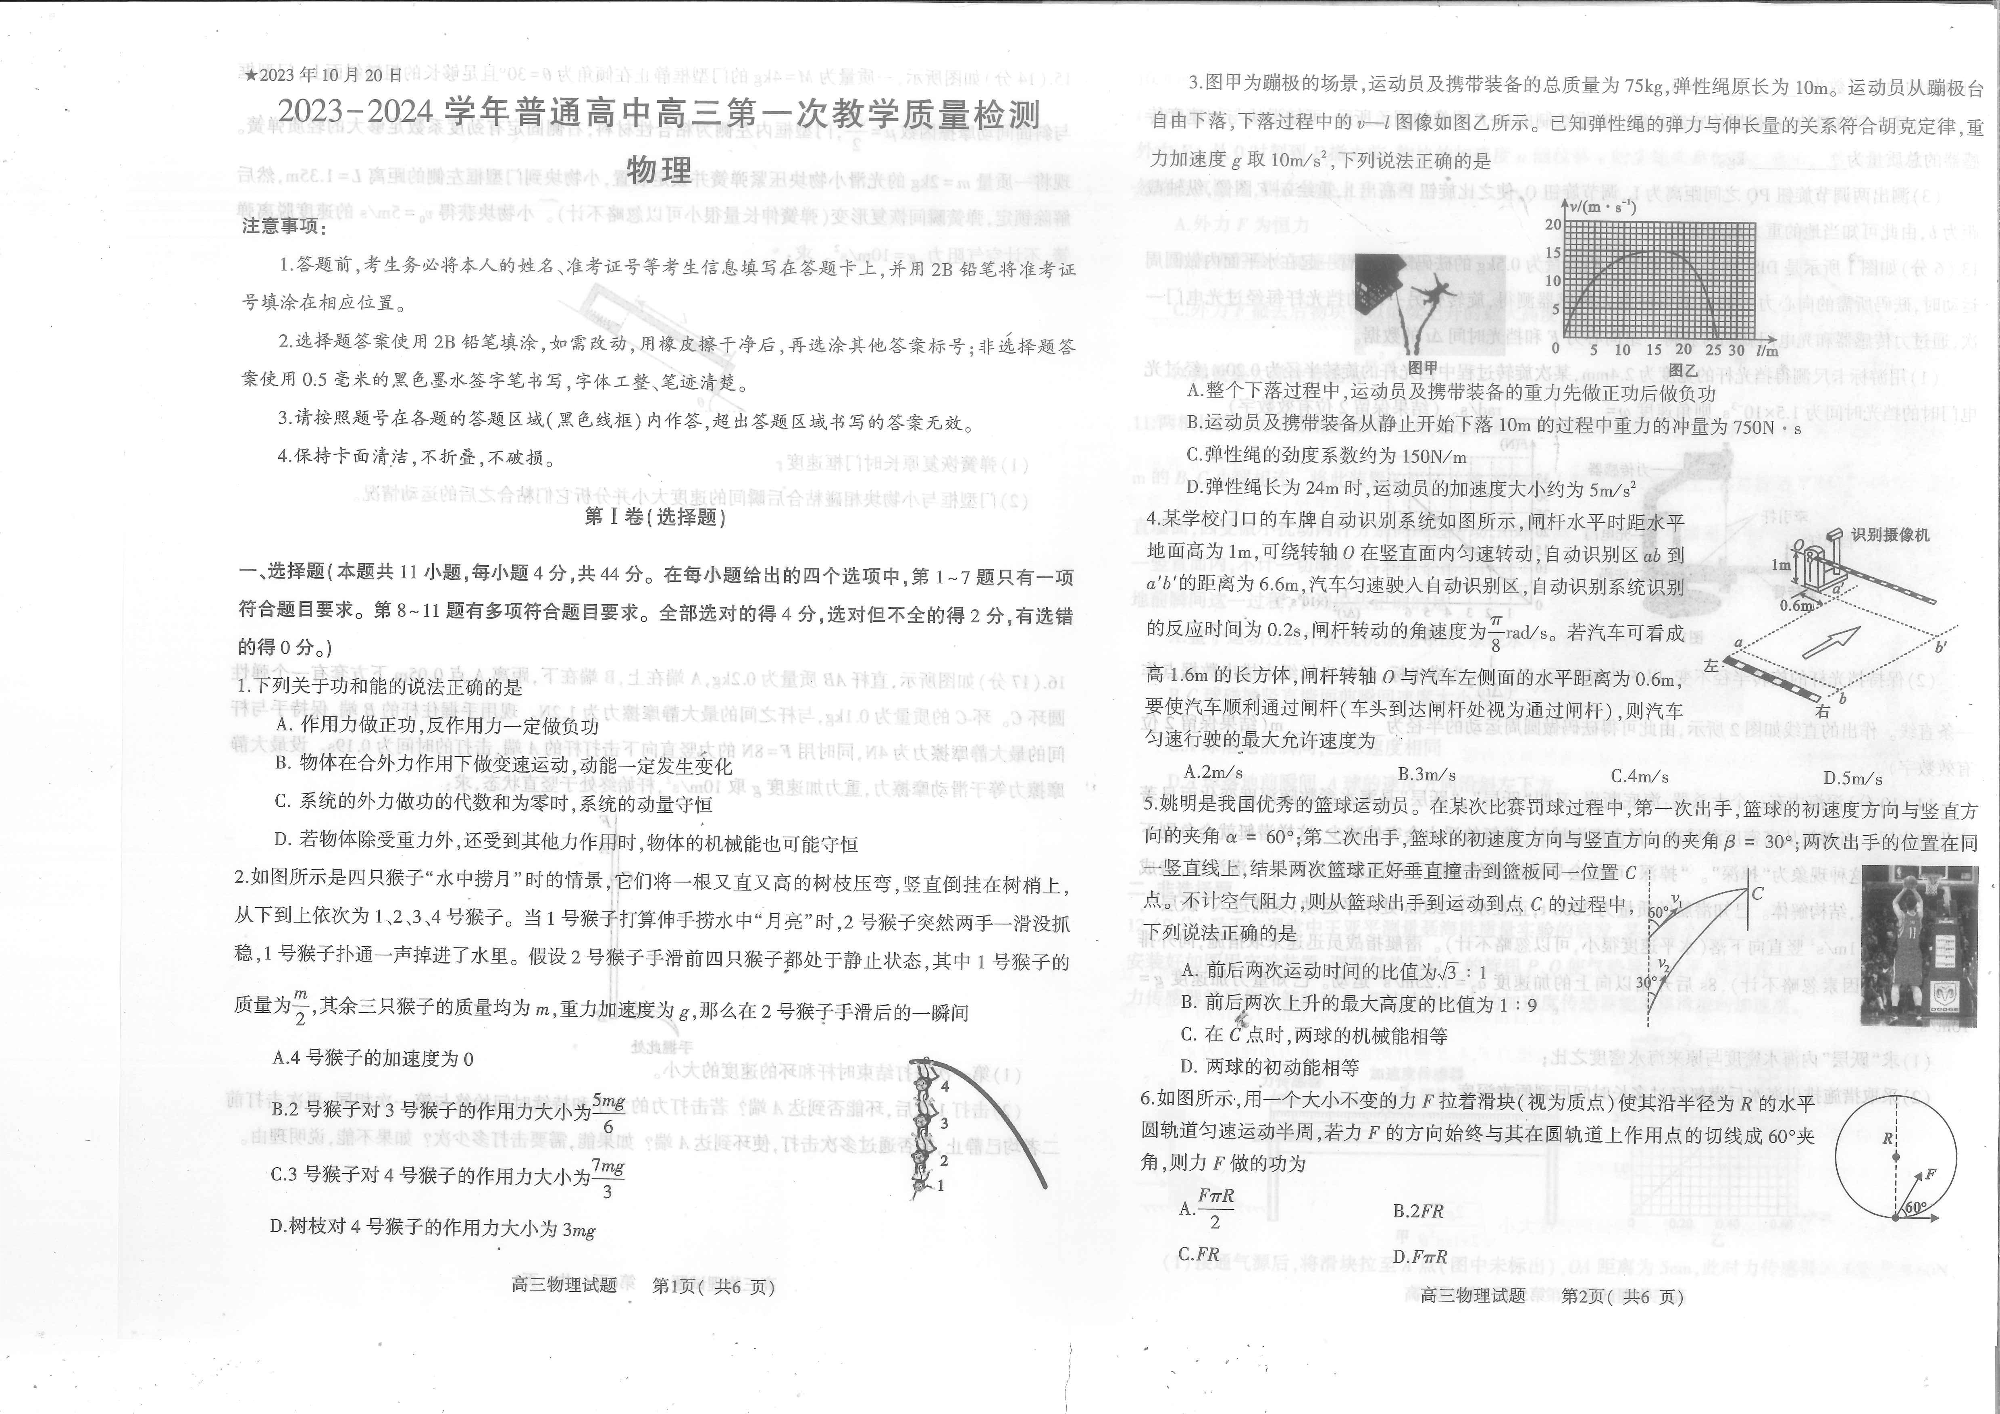 ★2023 年 10 月 20 日
2023-2024 学年普通高中高三第一次教学质量检测
物理
注意事项:
1.答题前,考生务必将本人的姓名、准考证号等考生信息填写在答题卡上,并用 2B 铅笔将准考证
号填涂在相应位置。
2.选择题答案使用 2B 铅笔填涂,如需改动,用橡皮擦干净后,再选涂其他答案标号;非选择题答
案使用 0.5 毫米的黑色墨水签字笔书写,字体工整、笔迹清楚。
3.请按照题号在各题的答题区域(黑色线框)内作答,超出答题区域书写的答案无效。
4.保持卡面清洁,不折叠,不破损。
第 I 卷(选择题)
一、选择题(本题共 11 小题,每小题 4 分,共 44 分。在每小题给出的四个选项中,第 1~7 题只有一项
符合题目要求。第 8~11 题有多项符合题目要求。全部选对的得 4 分,选对但不全的得 2 分,有选错
的得 0 分。)
1.下列关于功和能的说法正确的是
A. 作用力做正功,反作用力一定做负功
B. 物体在合外力作用下做变速运动,动能一定发生变化
C. 系统的外力做功的代数和为零时,系统的动量守恒
D. 若物体除受重力外,还受到其他力作用时,物体的机械能也可能守恒
2.如图所示是四只猴子“水中捞月”时的情景,它们将一根又直又高的树枝压弯,竖直倒挂在树梢上,
从下到上依次为 1、2、3、4 号猴子。当 1 号猴子打算伸手捞水中“月亮”时,2 号猴子突然两手一滑没抓
稳,1 号猴子扑通一声掉进了水里。假设 2 号猴子手滑前四只猴子都处于静止状态,其中 1 号猴子的
质量为m/2,其余三只猴子的质量均为 m,重力加速度为 g,那么在 2 号猴子手滑后的一瞬间
A.4 号猴子的加速度为 0
B.2 号猴子对 3 号猴子的作用力大小为5mg/6
C.3 号猴子对 4 号猴子的作用力大小为7mg/3
D.树枝对 4 号猴子的作用力大小为 3mg
4
3
2
1
高三物理试题 第1页( 共6 页)
3.图甲为蹦极的场景,运动员及携带装备的总质量为 75kg,弹性绳原长为 10m。运动员从蹦极台
自由下落,下落过程中的 v—l 图像如图乙所示。已知弹性绳的弹力与伸长量的关系符合胡克定律,重
力加速度 g 取 10m/s²,下列说法正确的是
v/(m·s⁻¹)
20
15
10
5
0 5 10 15 20 25 30 l/m
图甲
图乙
A.整个下落过程中,运动员及携带装备的重力先做正功后做负功
B.运动员及携带装备从静止开始下落 10m 的过程中重力的冲量为 750N·s
C.弹性绳的劲度系数约为 150N/m
D.弹性绳长为 24m 时,运动员的加速度大小约为 5m/s²
4.某学校门口的车牌自动识别系统如图所示,闸杆水平时距水平
地面高为 1m,可绕转轴 O 在竖直面内匀速转动,自动识别区 ab 到
a′b′的距离为 6.6m,汽车匀速驶入自动识别区,自动识别系统识别
的反应时间为 0.2s,闸杆转动的角速度为π/8rad/s。若汽车可看成
高 1.6m 的长方体,闸杆转轴 O 与汽车左侧面的水平距离为 0.6m,
要使汽车顺利通过闸杆(车头到达闸杆处视为通过闸杆),则汽车
匀速行驶的最大允许速度为
识别摄像机
O
1m
0.6m
a′
b′
a
b
左
右
A.2m/s B.3m/s C.4m/s D.5m/s
5.姚明是我国优秀的篮球运动员。在某次比赛罚球过程中,第一次出手,篮球的初速度方向与竖直方
向的夹角 α = 60°;第二次出手,篮球的初速度方向与竖直方向的夹角 β = 30°;两次出手的位置在同
一竖直线上,结果两次篮球正好垂直撞击到篮板同一位置 C
点。不计空气阻力,则从篮球出手到运动到点 C 的过程中,
下列说法正确的是
A. 前后两次运动时间的比值为√3 : 1
B. 前后两次上升的最大高度的比值为 1 : 9
C. 在 C 点时,两球的机械能相等
D. 两球的初动能相等
60°
v₁
C
v₂
30°
6.如图所示,用一个大小不变的力 F 拉着滑块(视为质点)使其沿半径为 R 的水平
圆轨道匀速运动半周,若力 F 的方向始终与其在圆轨道上作用点的切线成 60°夹
角,则力 F 做的功为
A.FπR/2 B.2FR
C.FR D.FπR
R
F
60°
高三物理试题 第2页( 共6 页)